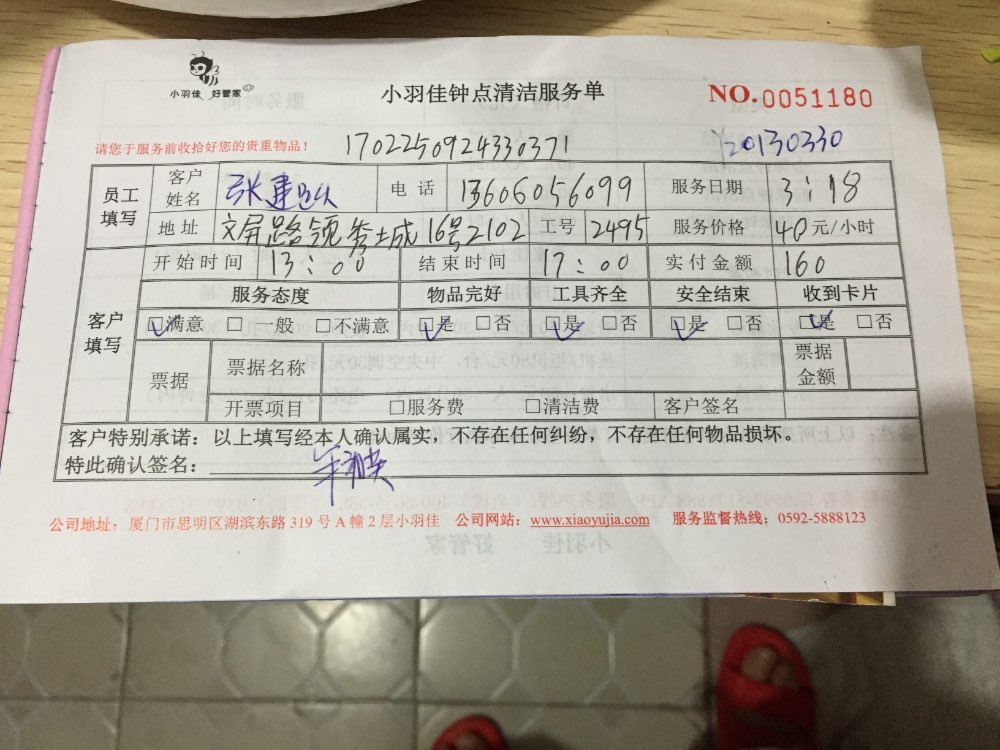 小羽佳 好管家
小羽佳钟点清洁服务单
NO.0051180
请您于服务前收拾好您的贵重物品!
1702250924330371
Y20130330
员工填写 客户姓名 张建 电话 13606056099 服务日期 3:18
地址 文屏路领秀城16号2102 工号 2495 服务价格 40元/小时
客户填写 开始时间 13:00 结束时间 17:00 实付金额 160
服务态度 物品完好 工具齐全 安全结束 收到卡片
☑满意 □一般 □不满意 ☑是 □否 ☑是 □否 ☑是 □否 ☑是 □否
票据 票据名称 票据金额
开票项目 □服务费 □清洁费 客户签名
客户特别承诺:以上填写经本人确认属实,不存在任何纠纷,不存在任何物品损坏。
特此确认签名:
公司地址:厦门市思明区湖滨东路319号A幢2层小羽佳 公司网站:www.xiaoyujia.com 服务监督热线:0592-5888123